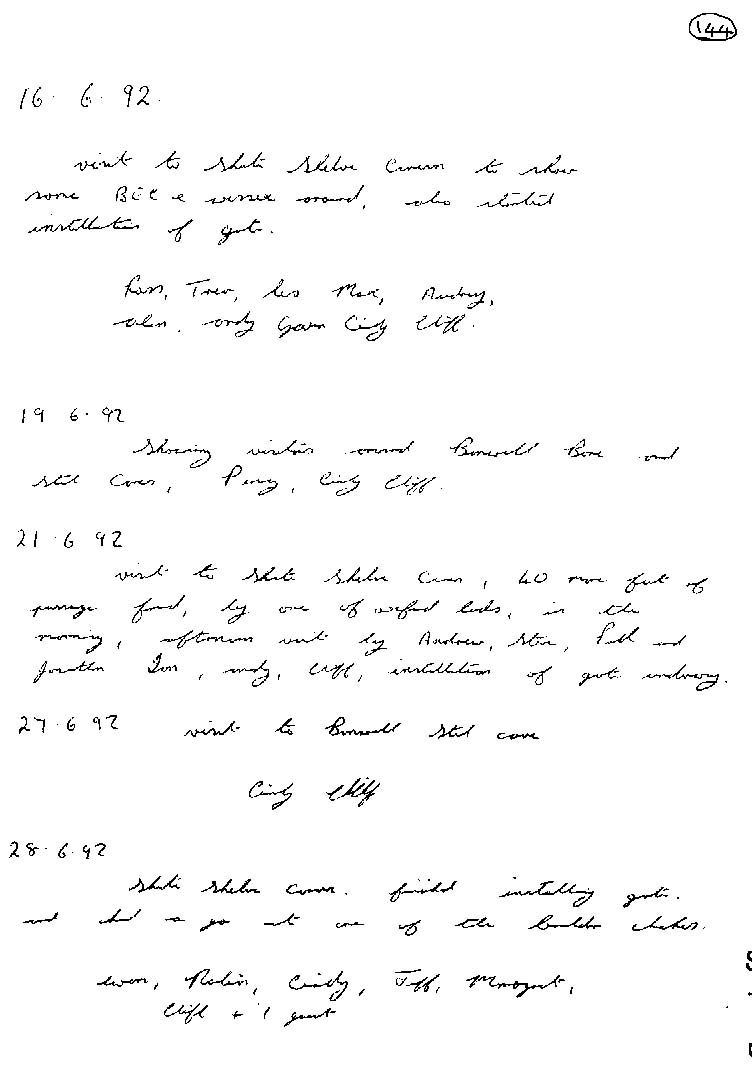 144
16. 6. 92.
visit to Shute Shelve Cavern to show
some BEC e wessex around, also started
installation of gate.
Ross, Trev, les Max, Audrey,
alan, andy Gavin Cindy Cliff.
19 6. 92
Showing visitors around Banwell Bone and
Stal Caves, Cindy Cliff.
21. 6 92
visit to Shute Shelve Cavern, 40 more feet of
passage found, by one of lads, in the
morning, afternoon visit by Andrew, Steve, and
Jonathan, andy, Cliff, installation of gate underway.
27. 6 92 visit to Banwell Stal cave
Cindy Cliff
28. 6. 92
Shute Shelve Cavern. finished installing gate.
and had a go at one of the boulder chokes.
Ewan, Robin, Cindy, Jeff, Margaret,
Cliff + 1 guest